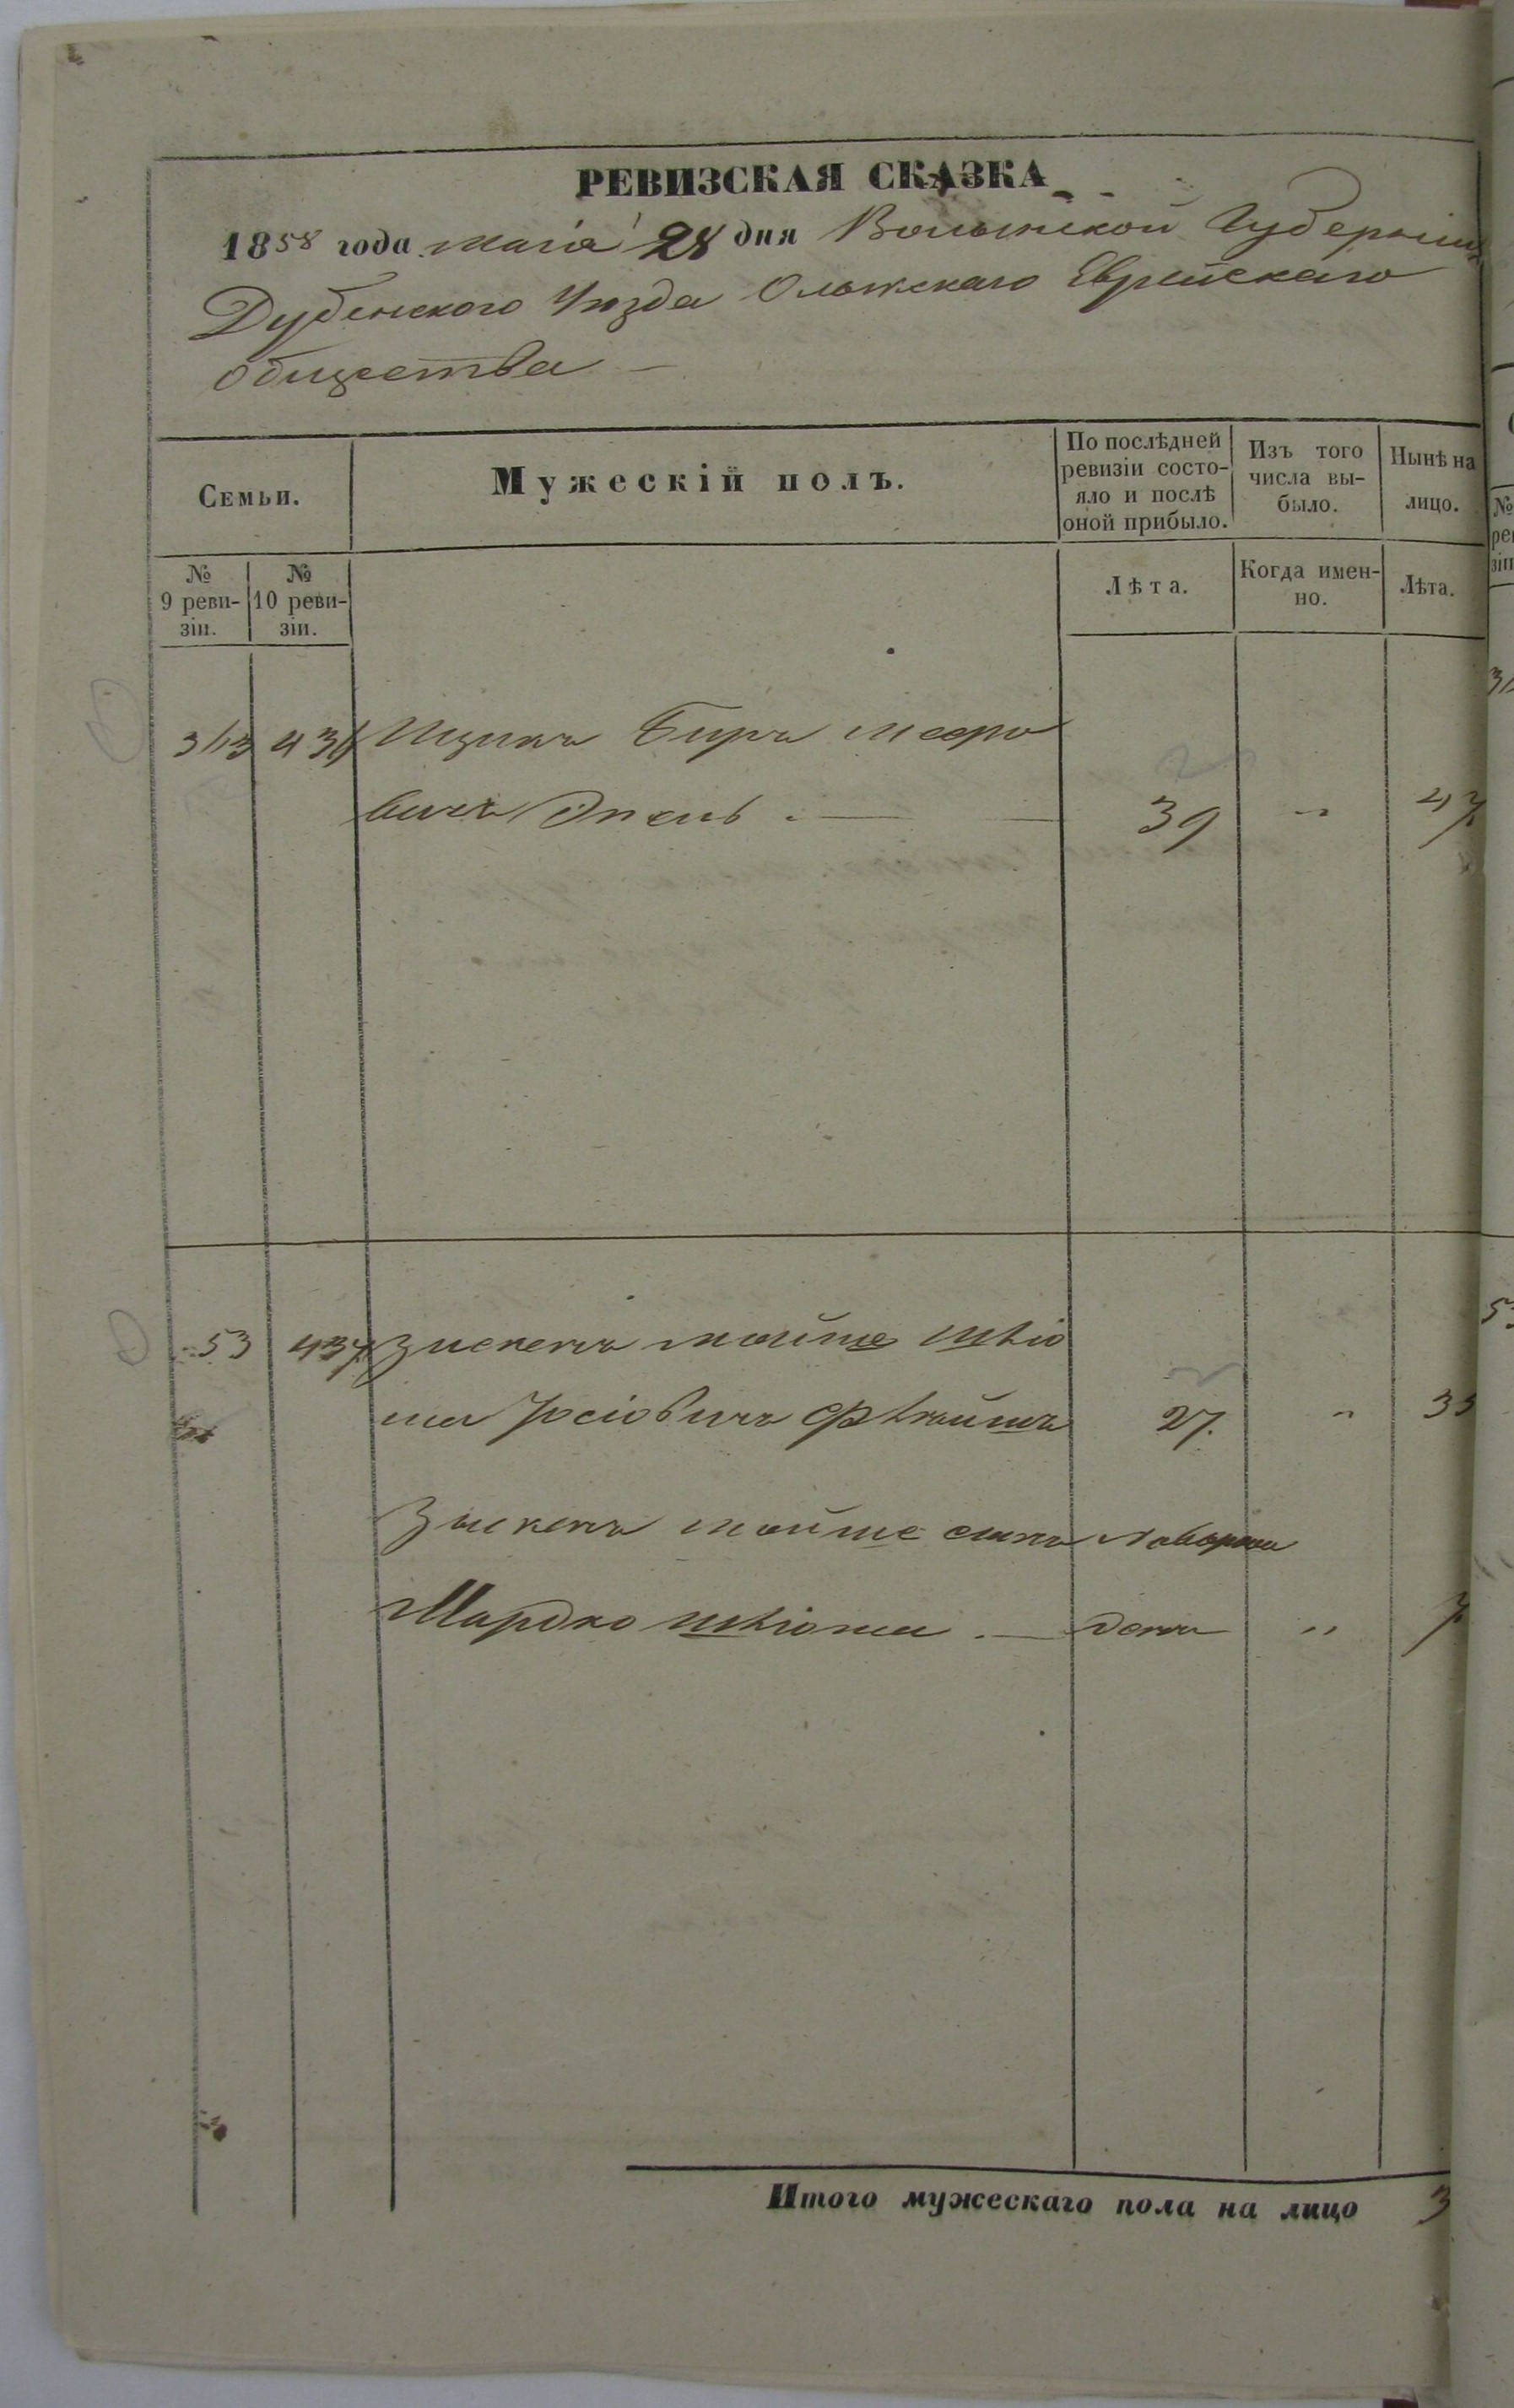 РЕВИЗСКАЯ СКАЗКА
1858 года маія 28 дня Волынской Губерніи
Дубенского Уѣзда Олыкскаго Еврейскаго
общества –
Семьи.
Мужескій полъ.
По послѣдней
ревизіи состо-
яло и послѣ
оной прибыло.
Изъ того
числа вы-
было.
Нынѣ на
лицо.
№
9 реви-
зіи.
№
10 реви-
зіи.
Лѣта.
Когда имен-
но.
Лѣта.
Ицикъ Беръ Мееро
вичъ 39 " 47
53 437 Зискенъ Мойше
Іосіовичъ 27. " 35
Зискена Мойше сынъ новорож
Мардко денъ " 7
Итого мужескаго пола на лицо 3